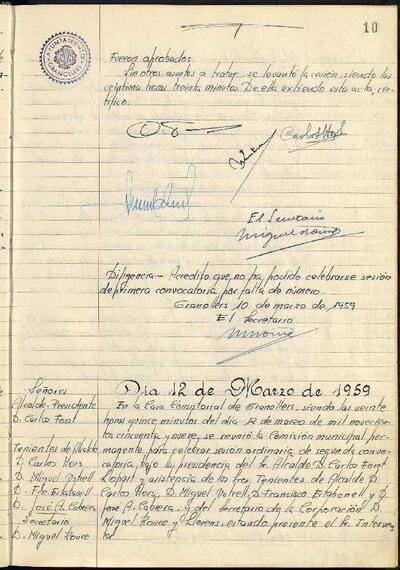 10
AYUNTAMIENTO
Fueron aprobados.
Sin otros asuntos a tratar, se levantó la sesión, siendo las
veintiuna horas treinta minutos. De ella extiendo esta acta, cer-
tifico.
El Secretario
Diligencia.- Acredito que no ha podido celebrarse sesión
de primera convocatoria por falta de número.
Granollers 10 de marzo de 1959
El Secretario
Día 12 de Marzo de 1959
Señores
Alcalde-Presidente
D. Carlos Font
Tenientes de Alcalde
D. Carlos Hors
D. Miguel Botrell
D. Fco. Estabanell
D. José A. Cabrera
Secretario
D. Miguel Roure
En la Casa Consistorial de Granollers, siendo las veinte
horas quince minutos del día 12 de marzo de mil novecien-
tos cincuenta y nueve, se reunió la Comisión municipal per-
manente para celebrar sesión ordinaria de segunda convo-
catoria, bajo la presidencia del Sr. Alcalde D. Carlos Font
Llopart y asistencia de los Sres. Tenientes de Alcalde D.
Carlos Hors, D. Miguel Botrell, D. Francisco Estabanell y D.
José A. Cabrera, y del Secretario de la Corporación D.
Miguel Roure y Llorens, estando presente el Sr. Interven-
tor.